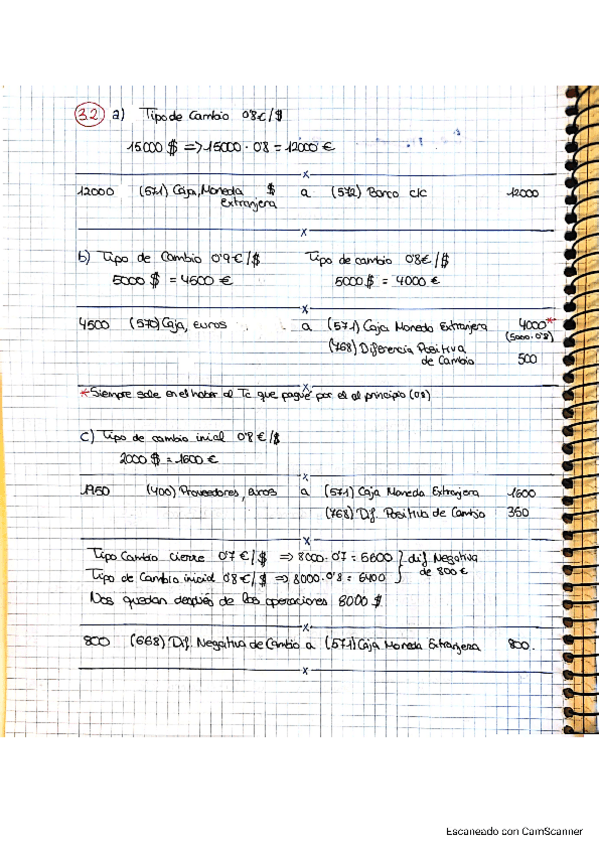 32 a) Tipo de Cambio 0'8€/$
15000 $ => 15000 · 0'8 = 12000 €
x
12000 (571) Caja, Moneda $ a (572) Banco c/c 12000
Extranjera
x
b) Tipo de Cambio 0'9€/$ Tipo de cambio 0'8€/$
5000 $ = 4500 € 5000 $ = 4000 €
x
4500 (570) Caja, euros a (571) Caja Moneda Extranjera 4000*
(5000·0'8)
(768) Diferencia Positiva
de Cambio 500
x
*Siempre sale en el haber al Tc que pagué por el al principio (0'8)
c) Tipo de cambio inicial 0'8€/$
2000 $ = 1600 €
x
1950 (400) Proveedores, euros a (571) Caja Moneda Extranjera 1600
(768) Dif. Positiva de Cambio 350
x
Tipo Cambio cierre 0'7 €/$ => 8000·0'7 = 5600 } dif Negativa
Tipo de Cambio inicial 0'8€/$ => 8000·0'8 = 6400 de 800€
Nos quedan después de las operaciones 8000 $
x
800 (668) Dif. Negativa de Cambio a (571) Caja Moneda Extranjera 800.
x
Escaneado con CamScanner